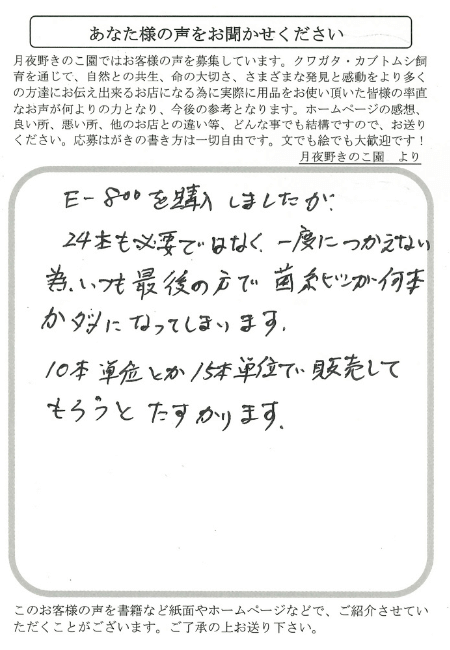 あなた様の声をお聞かせください
月夜野きのこ園ではお客様の声を募集しています。クワガタ・カブトムシ飼
育を通じて、自然との共生、命の大切さ、さまざまな発見と感動をより多く
の方達にお伝え出来るお店になる為に実際に用品をお使い頂いた皆様の率直
なお声が何よりの力となり、今後の参考となります。ホームページの感想、
良い所、悪い所、他のお店との違い等、どんな事でも結構ですので、お送り
ください。応募はがきの書き方は一切自由です。文でも絵でも大歓迎です！
月夜野きのこ園　より
E-800を購入しましたが、
24本も必要ではなく、一度につかえない
為、いつも最後の方で菌糸ビンが何本
かダメになってしまいます。
10本単位とか15本単位で販売して
もらうとたすかります。
このお客様の声を書籍など紙面やホームページなどで、ご紹介させてい
ただくことがございます。ご了承の上お送り下さい。